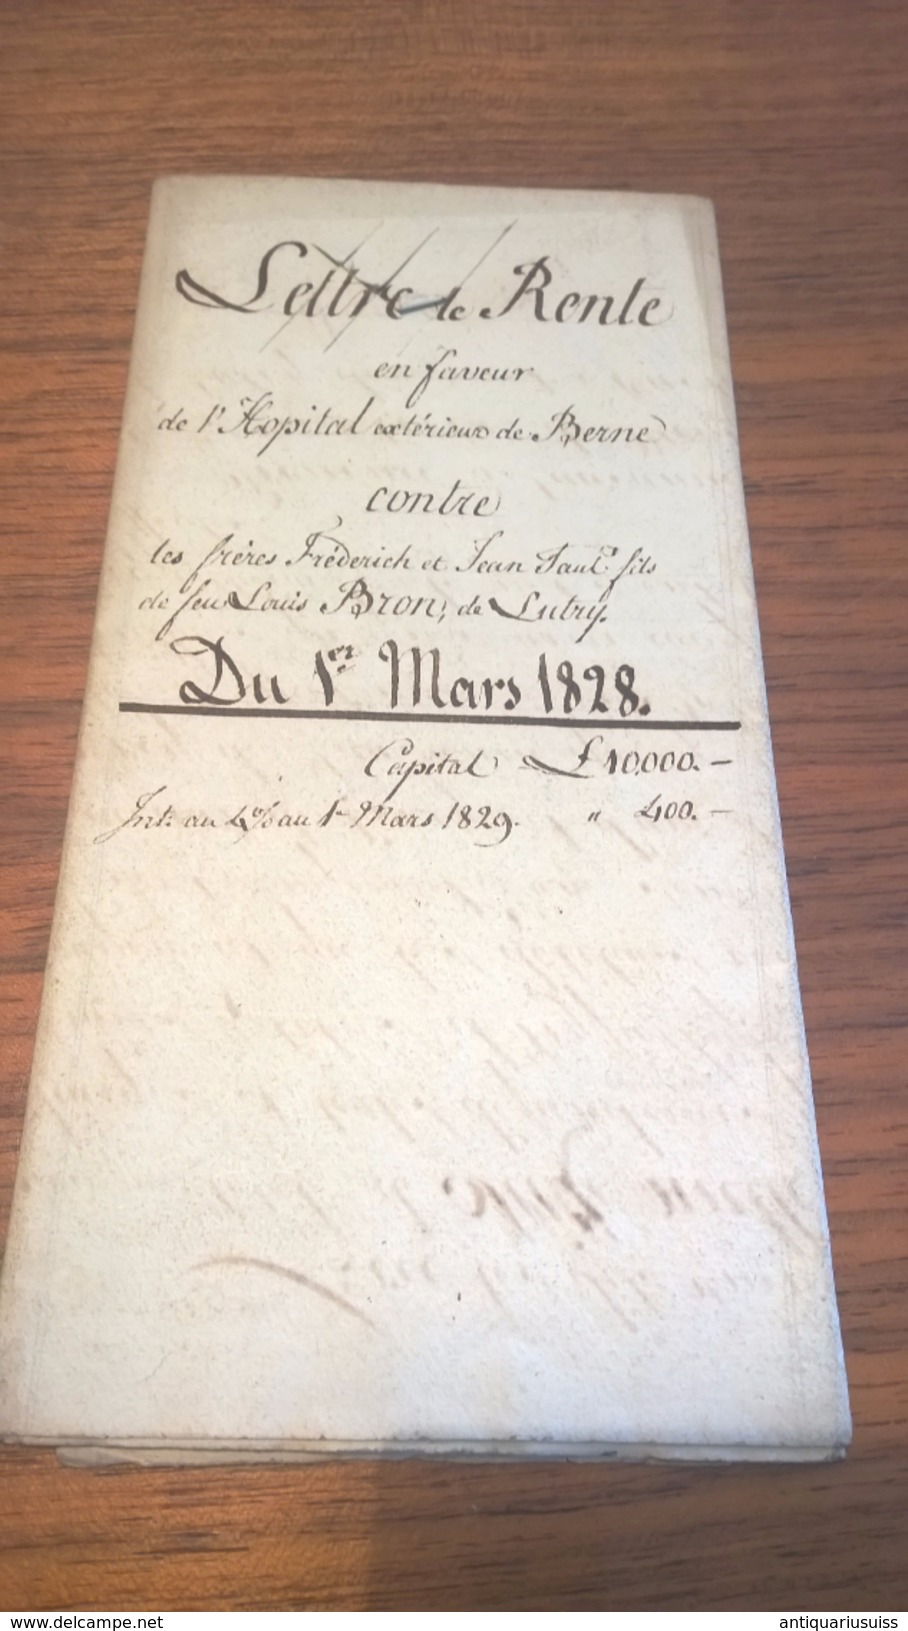 Lettre de Rente
en faveur
de l'Hopital extérieur de Berne
contre
les frères Fréderich et Jean Paul fils
de feu Louis Bron, de Lutry.
Du 1er Mars 1828.
Capital £ 10,000.-
Int: au 4% au 1er Mars 1829. " 400.-
www.delcampe.net
antiquariusuiss